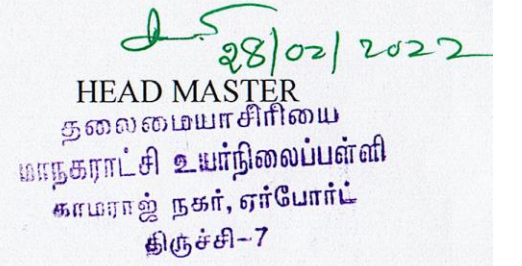 28/02/2022
HEAD MASTER
தலைமையாசிரியை
மாநகராட்சி உயர்நிலைப்பள்ளி
காமராஜ் நகர், ஏர்போர்ட்
திருச்சி-7